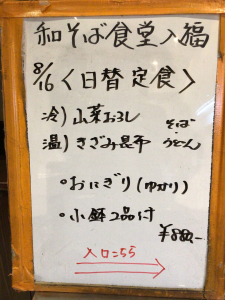 和そば食堂 入福
8/16〈日替定食〉
冷)山菜おろし
温)きざみ昆布
そば・うどん
・おにぎり(ゆかり)
・小鉢2品付
¥880-
入口こちら